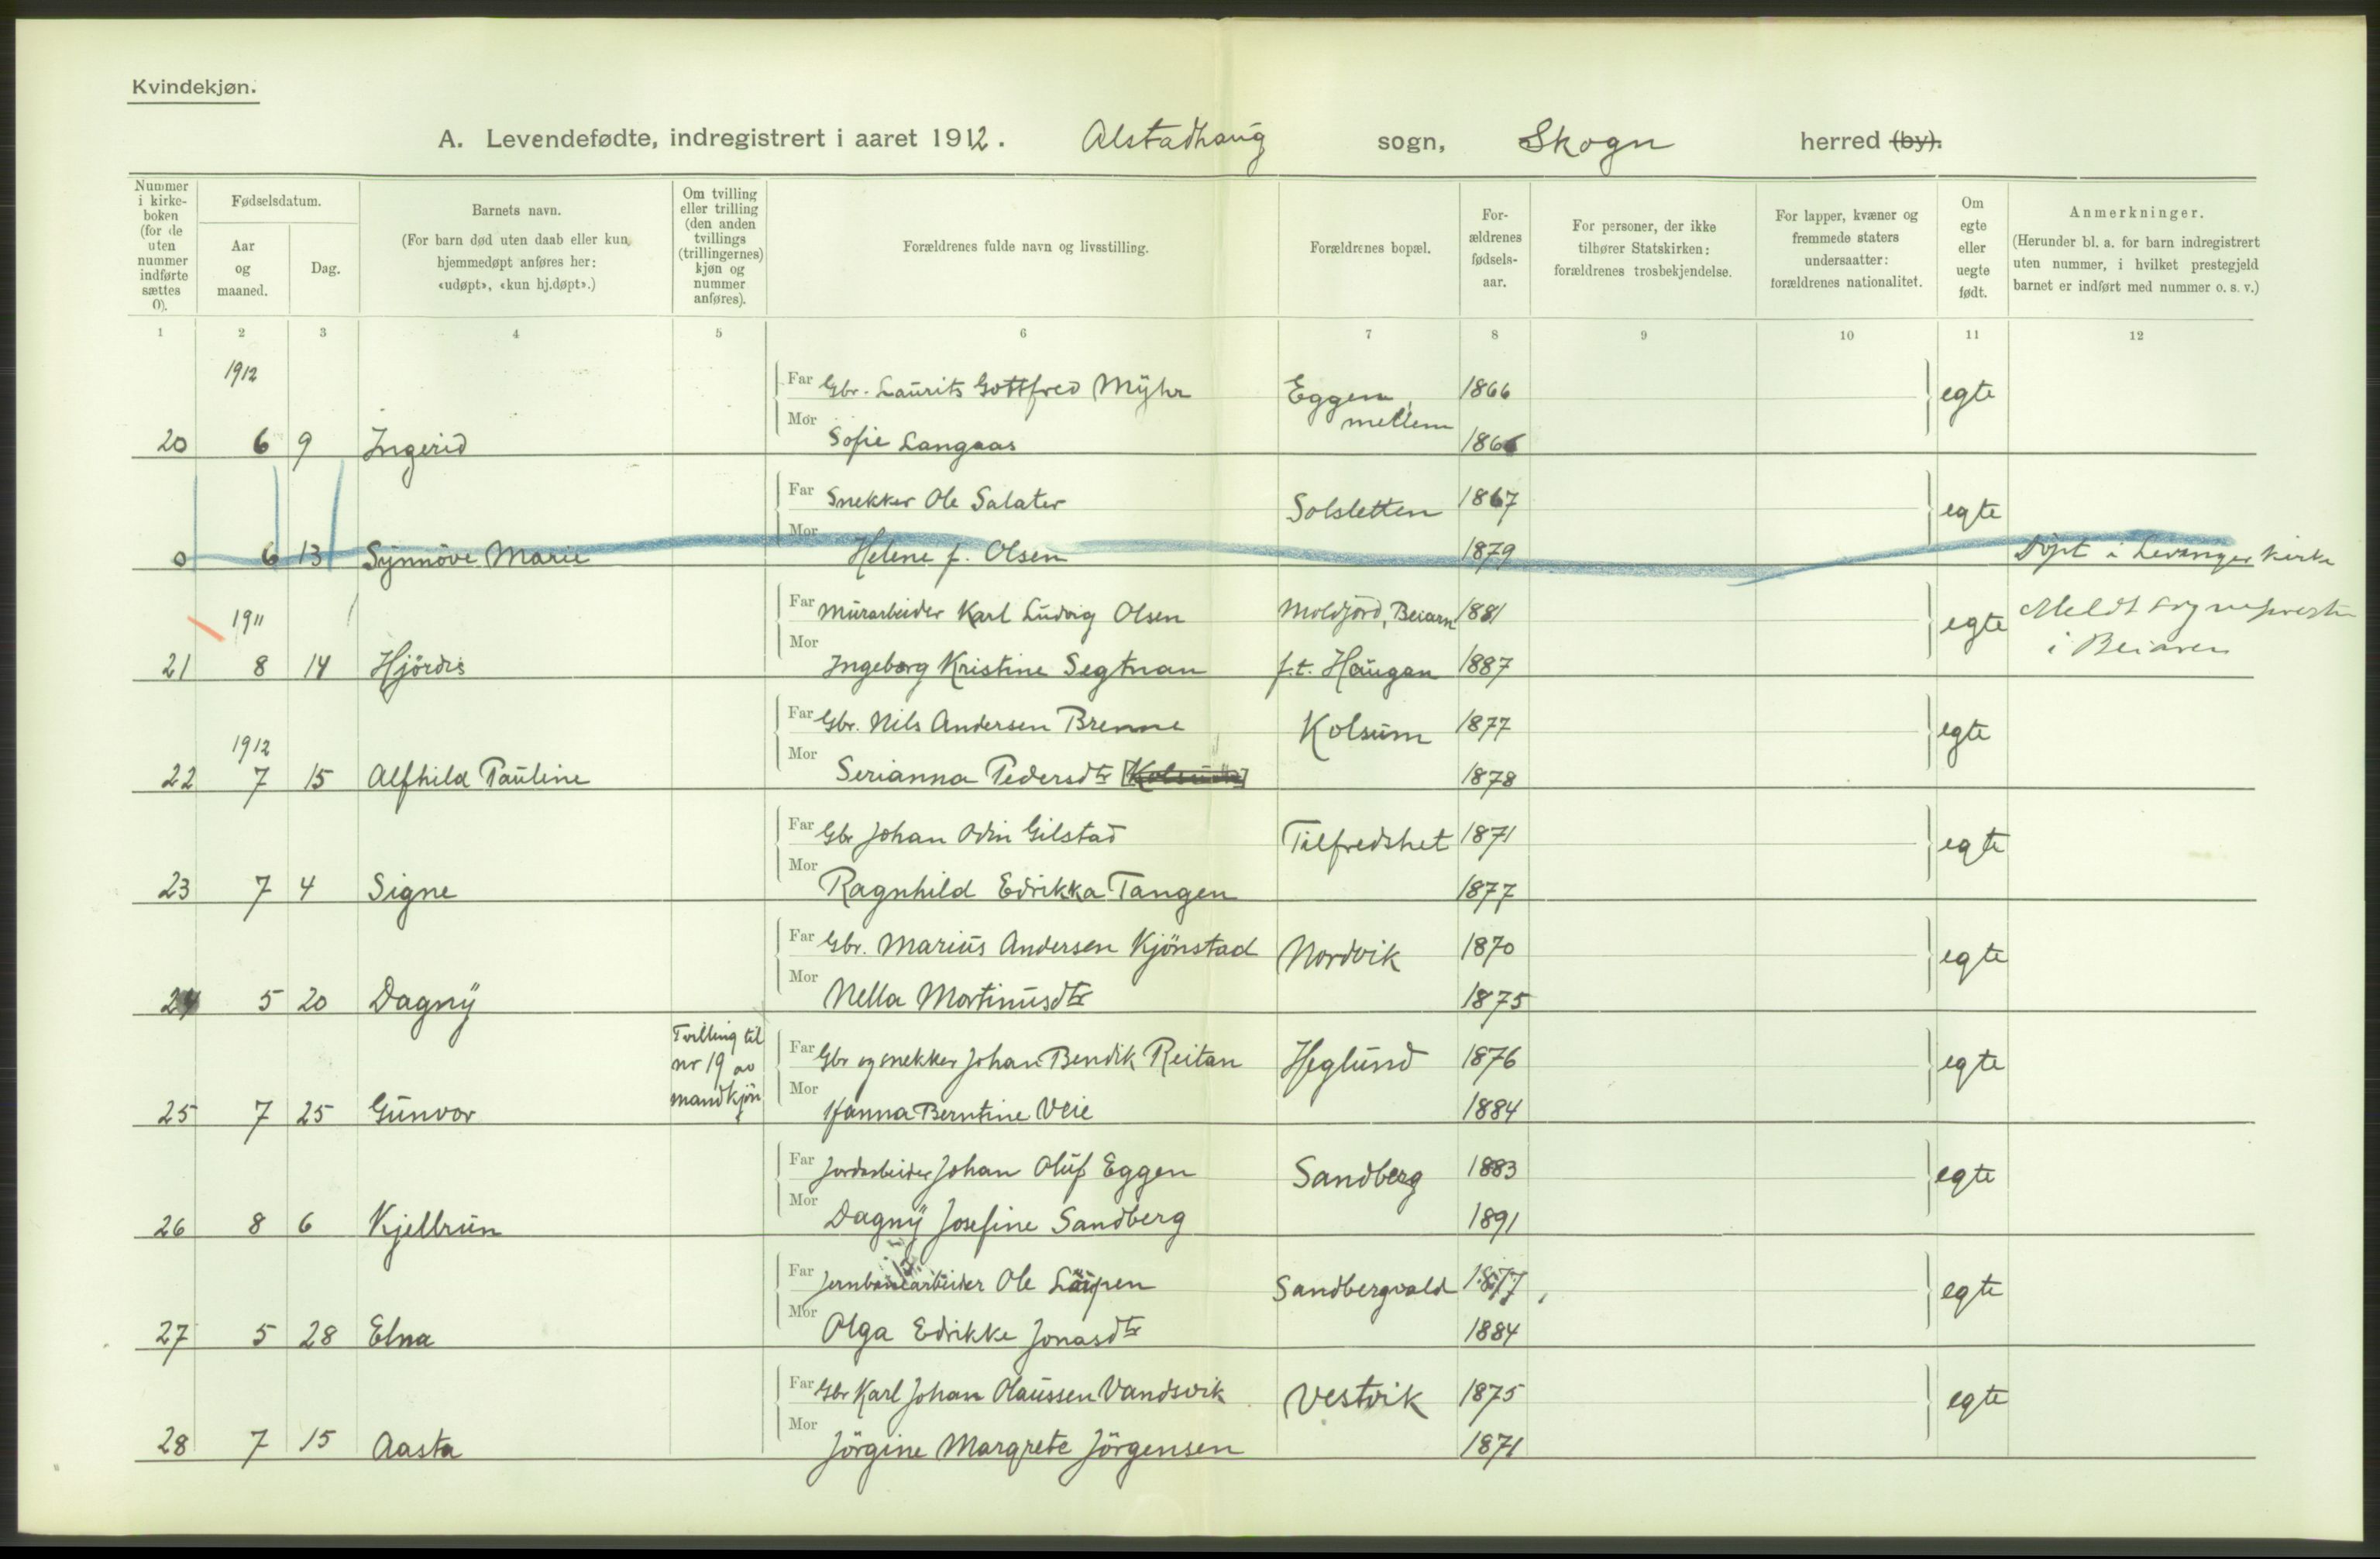 Kvindekjøn.
A. Levendefødte, indregistrert i aaret 1912. Alstadhaug sogn, Skogn herred (by).
Nummer i kirke-boken (for de uten nummer indførte sættes 0).
Fødselsdatum.
Aar og maaned.
Dag.
Barnets navn.
(For barn død uten daab eller kun hjemmedøpt anføres her: «udøpt», «kun hj.døpt».)
Om tvilling eller trilling (den anden tvillings (trillingernes) kjøn og nummer anføres).
Forældrenes fulde navn og livsstilling.
Forældrenes bopæl.
For-ældrenes fødsels-aar.
For personer, der ikke tilhører Statskirken: forældrenes trosbekjendelse.
For lapper, kvæner og fremmede staters undersaatter: forældrenes nationalitet.
Om egte eller uegte født.
Anmerkninger.
(Herunder bl. a. for barn indregistrert uten nummer, i hvilket prestegjeld barnet er indført med nummer o. s. v.)
1 2 3 4 5 6 7 8 9 10 11 12
1912
Far Gbr. Laurits Gottfred Mÿhr Eggen, mellem 1866 egte
20 6 9 Ingerid Mor Sofie Langaas 1866
Far Snekker Ole Salater Solsletten 1867 egte
0 6 13 Synnöve Marie Mor Helene f. Olsen 1879 Döpt i Levanger kirke
1911
Far Murarbeider Karl Ludvig Olsen Moldjord, Beiarn 1881 egte Meldt sognepresten
21 8 14 Hjördis Mor Ingeborg Kristine Segtnan f.t. Haugan 1887 i Beiaren
Far Gbr. Nils Andersen Brenne Kolsum 1877 egte
1912
22 7 15 Alfhild Pauline Mor Serianna Pedersdtr [Kolsum] 1878
Far Gbr Johan Odin Gilstad Tilfredshet 1871 egte
23 7 4 Signe Mor Ragnhild Edrikka Tangen 1877
Far Gbr. Marius Andersen Kjönstad Nordvik 1870 egte
24 5 20 Dagnÿ Mor Nella Martinusdtr 1875
Tvilling til nr 19 av mandkjön
Far Gbr og snekker Johan Bendik Reitan Heglund 1876 egte
25 7 25 Gunvor Mor Hanna Berntine Veie 1884
Far Jordarbeider Johan Oluf Eggen Sandberg 1883 egte
26 8 6 Kjellrun Mor Dagnÿ Josefine Sandberg 1891
Far Jernbanearbeider Ole Sandbergvald 1877 egte
27 5 28 Elna Mor Olga Edrikke Jonasdtr 1884
Far Gbr Karl Johan Olaussen Vandsvik Vestvik 1875 egte
28 7 15 Aasta Mor Jörgine Margrete Jörgensen 1871